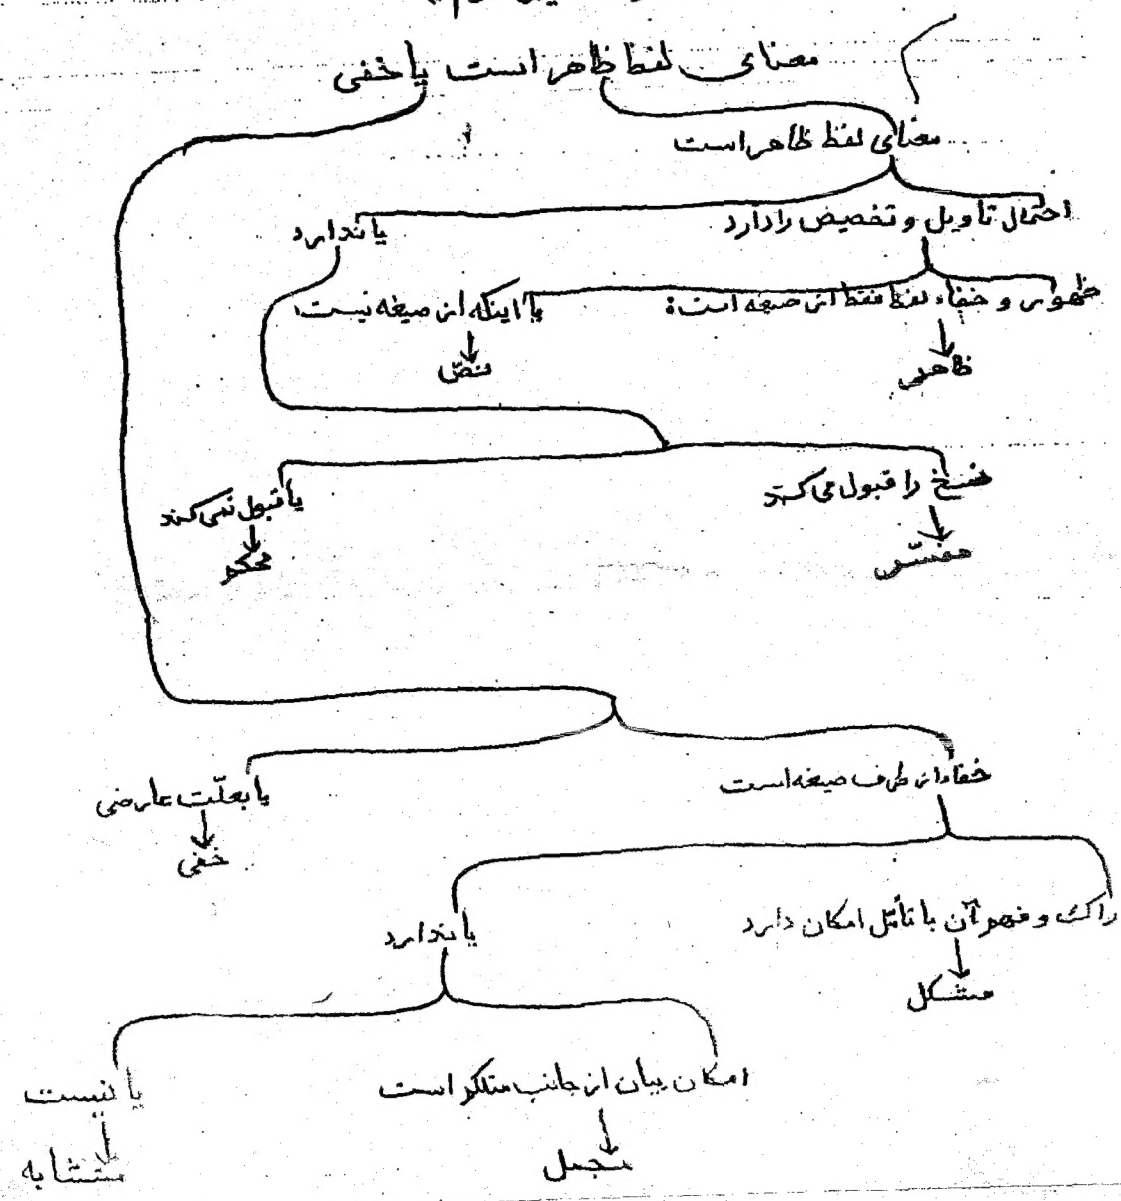 معنای لفظ ظاهر است یا خفی
معنای لفظ ظاهر است
احتمال تأویل و تخصیص را دارد
یا ندارد
ظهور و خفاء لفظ فقط از صیغه است:
یا اینکه از صیغه نیست:
ظاهر
نصّ
نسخ را قبول می‌کند
یا قبول نمی‌کند
مفسّر
محکم
خفاء از طرف صیغه است
یا بعلّت عارضی
خفی
و فهم آن با تأمّل امکان دارد
یا ندارد
مشکل
امکان بیان از جانب متکلم است
یا نیست
مجمل
متشابه